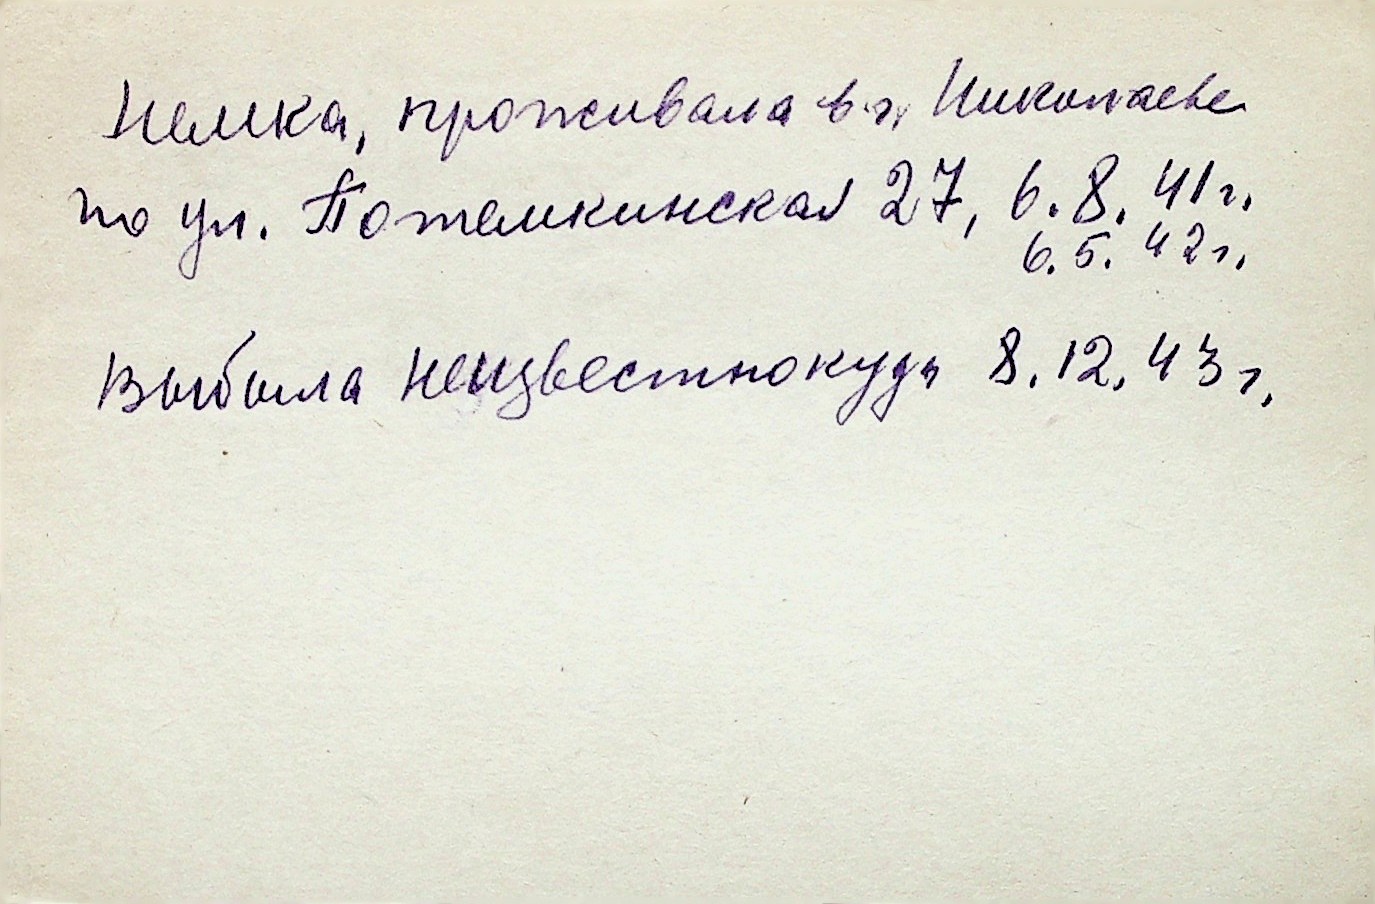 Немка, проживала в г. Николаеве
по ул. Потемкинская 27, 6.8.41г.
6.5.42г.
Выбыла неизвестнокуда 8.12.43г.